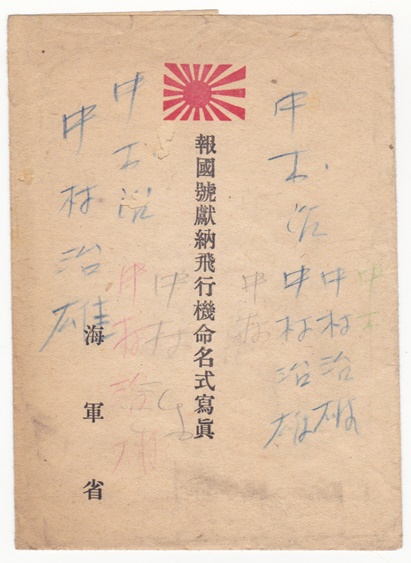 中村
中村治雄
中村治雄
中村
報國號獻納飛行機命名式寫眞
中村
中村治雄
海軍省
中村治雄